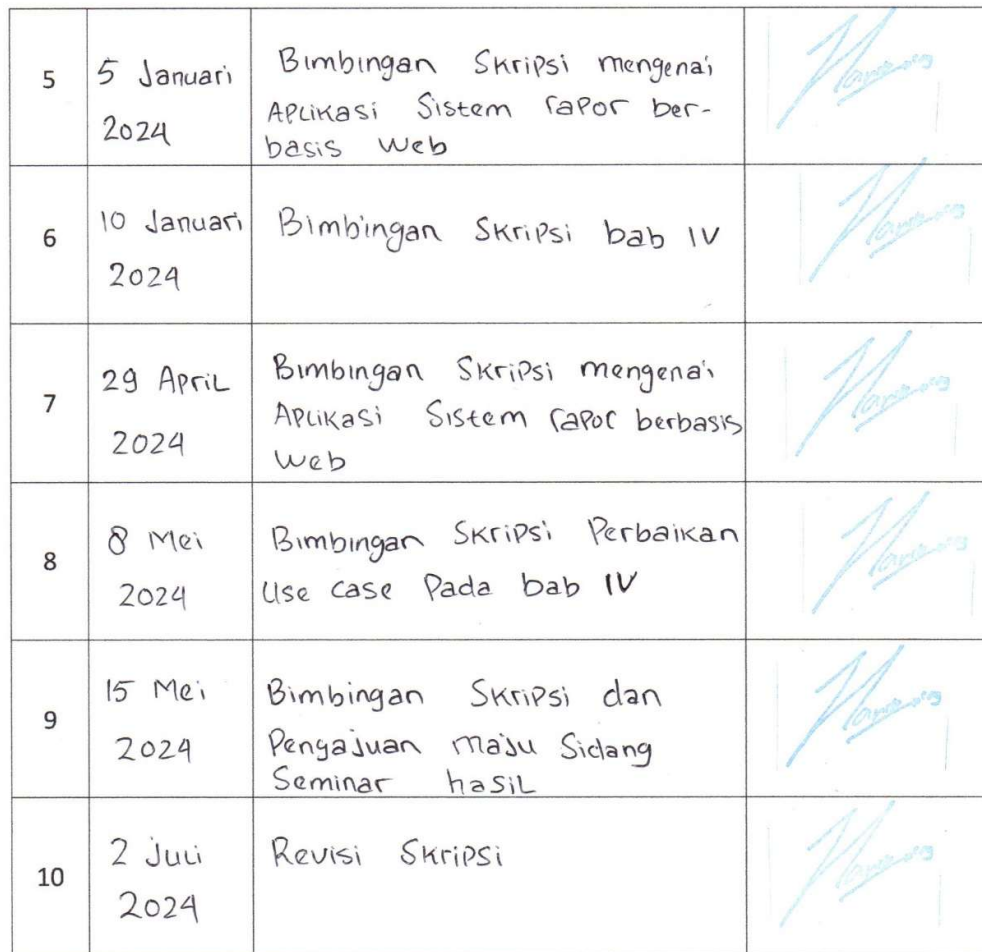 5
5 Januari
2024
Bimbingan Skripsi mengenai
Aplikasi Sistem rapor ber-
basis Web
6
10 Januari
2024
Bimbingan Skripsi bab IV
7
29 April
2024
Bimbingan Skripsi mengenai
Aplikasi Sistem rapor berbasis
Web
8
8 Mei
2024
Bimbingan Skripsi Perbaikan
Use case Pada bab IV
9
15 Mei
2024
Bimbingan Skripsi dan
Pengajuan maju Sidang
Seminar hasil
10
2 Juli
2024
Revisi Skripsi